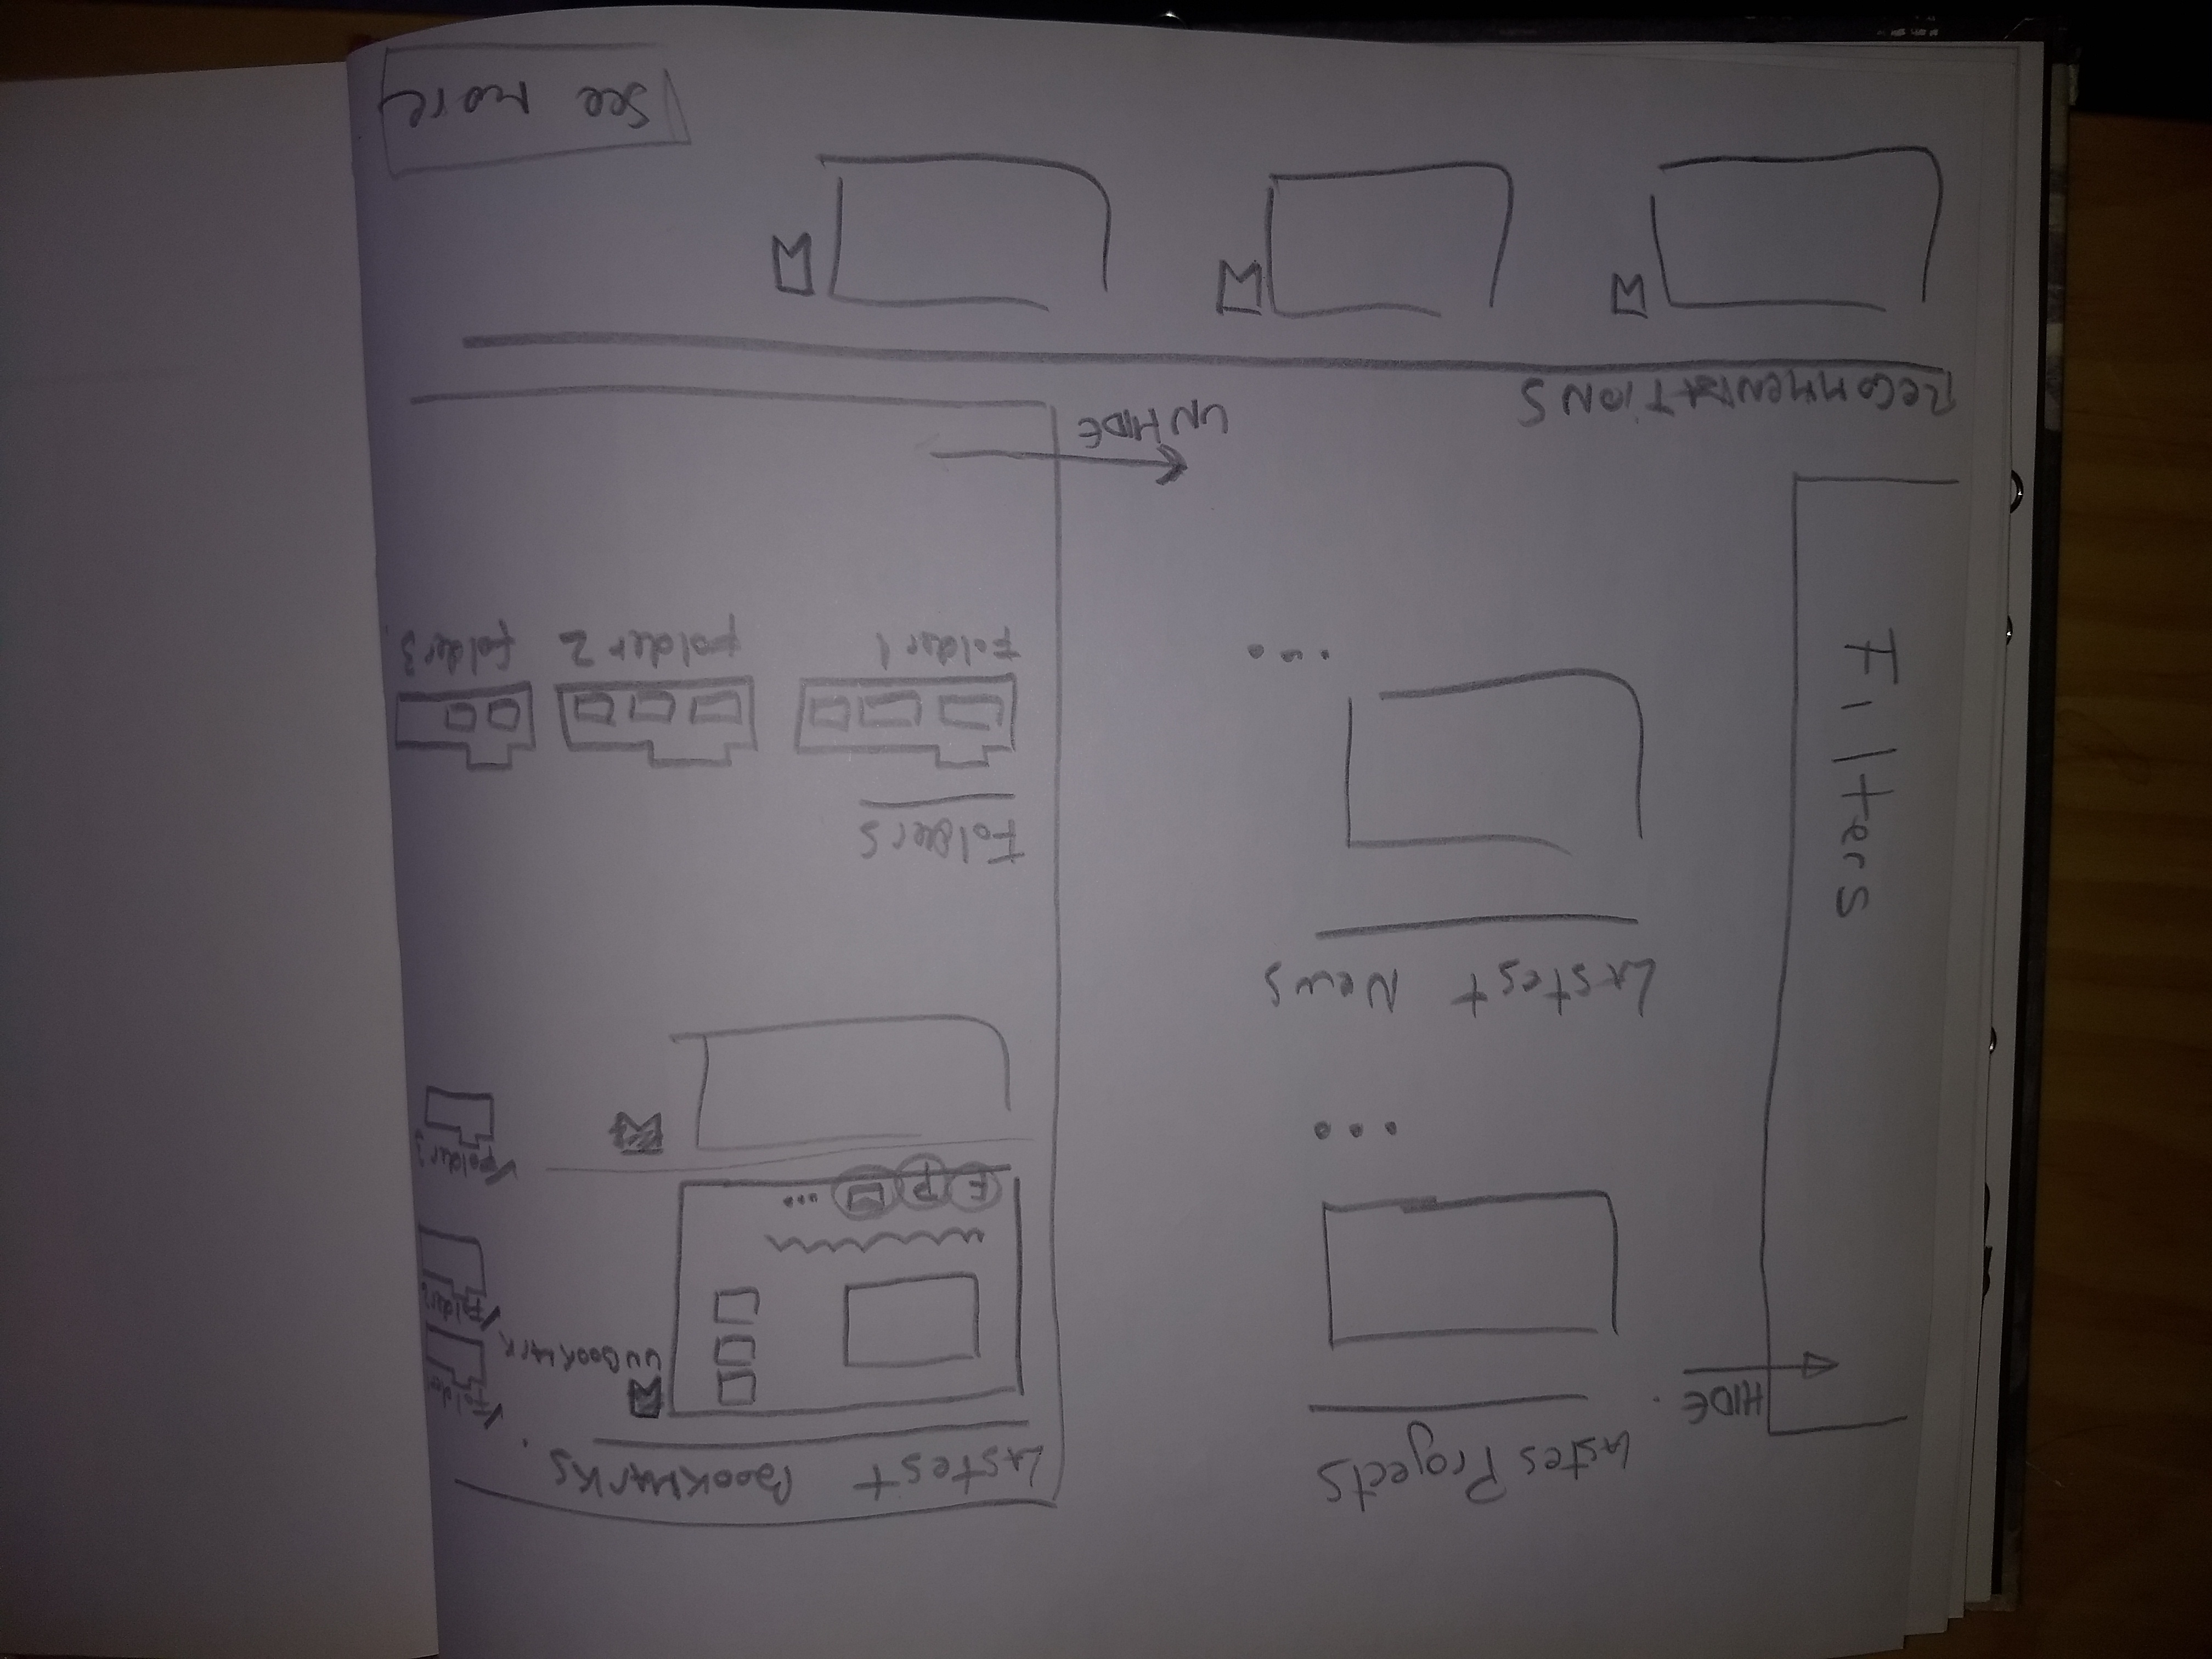 Lastes Projects
HIDE.
Filters
...
Lastest News
...
Lastest BOOKMARKS.
UNBOOKMARK
✓ Folder
✓ Folder2
F P ...
✓ Folder 3
Folders
Folder 1
Folder 2
folder 3.
UNHIDE
RECOMMENDATIONS
See more